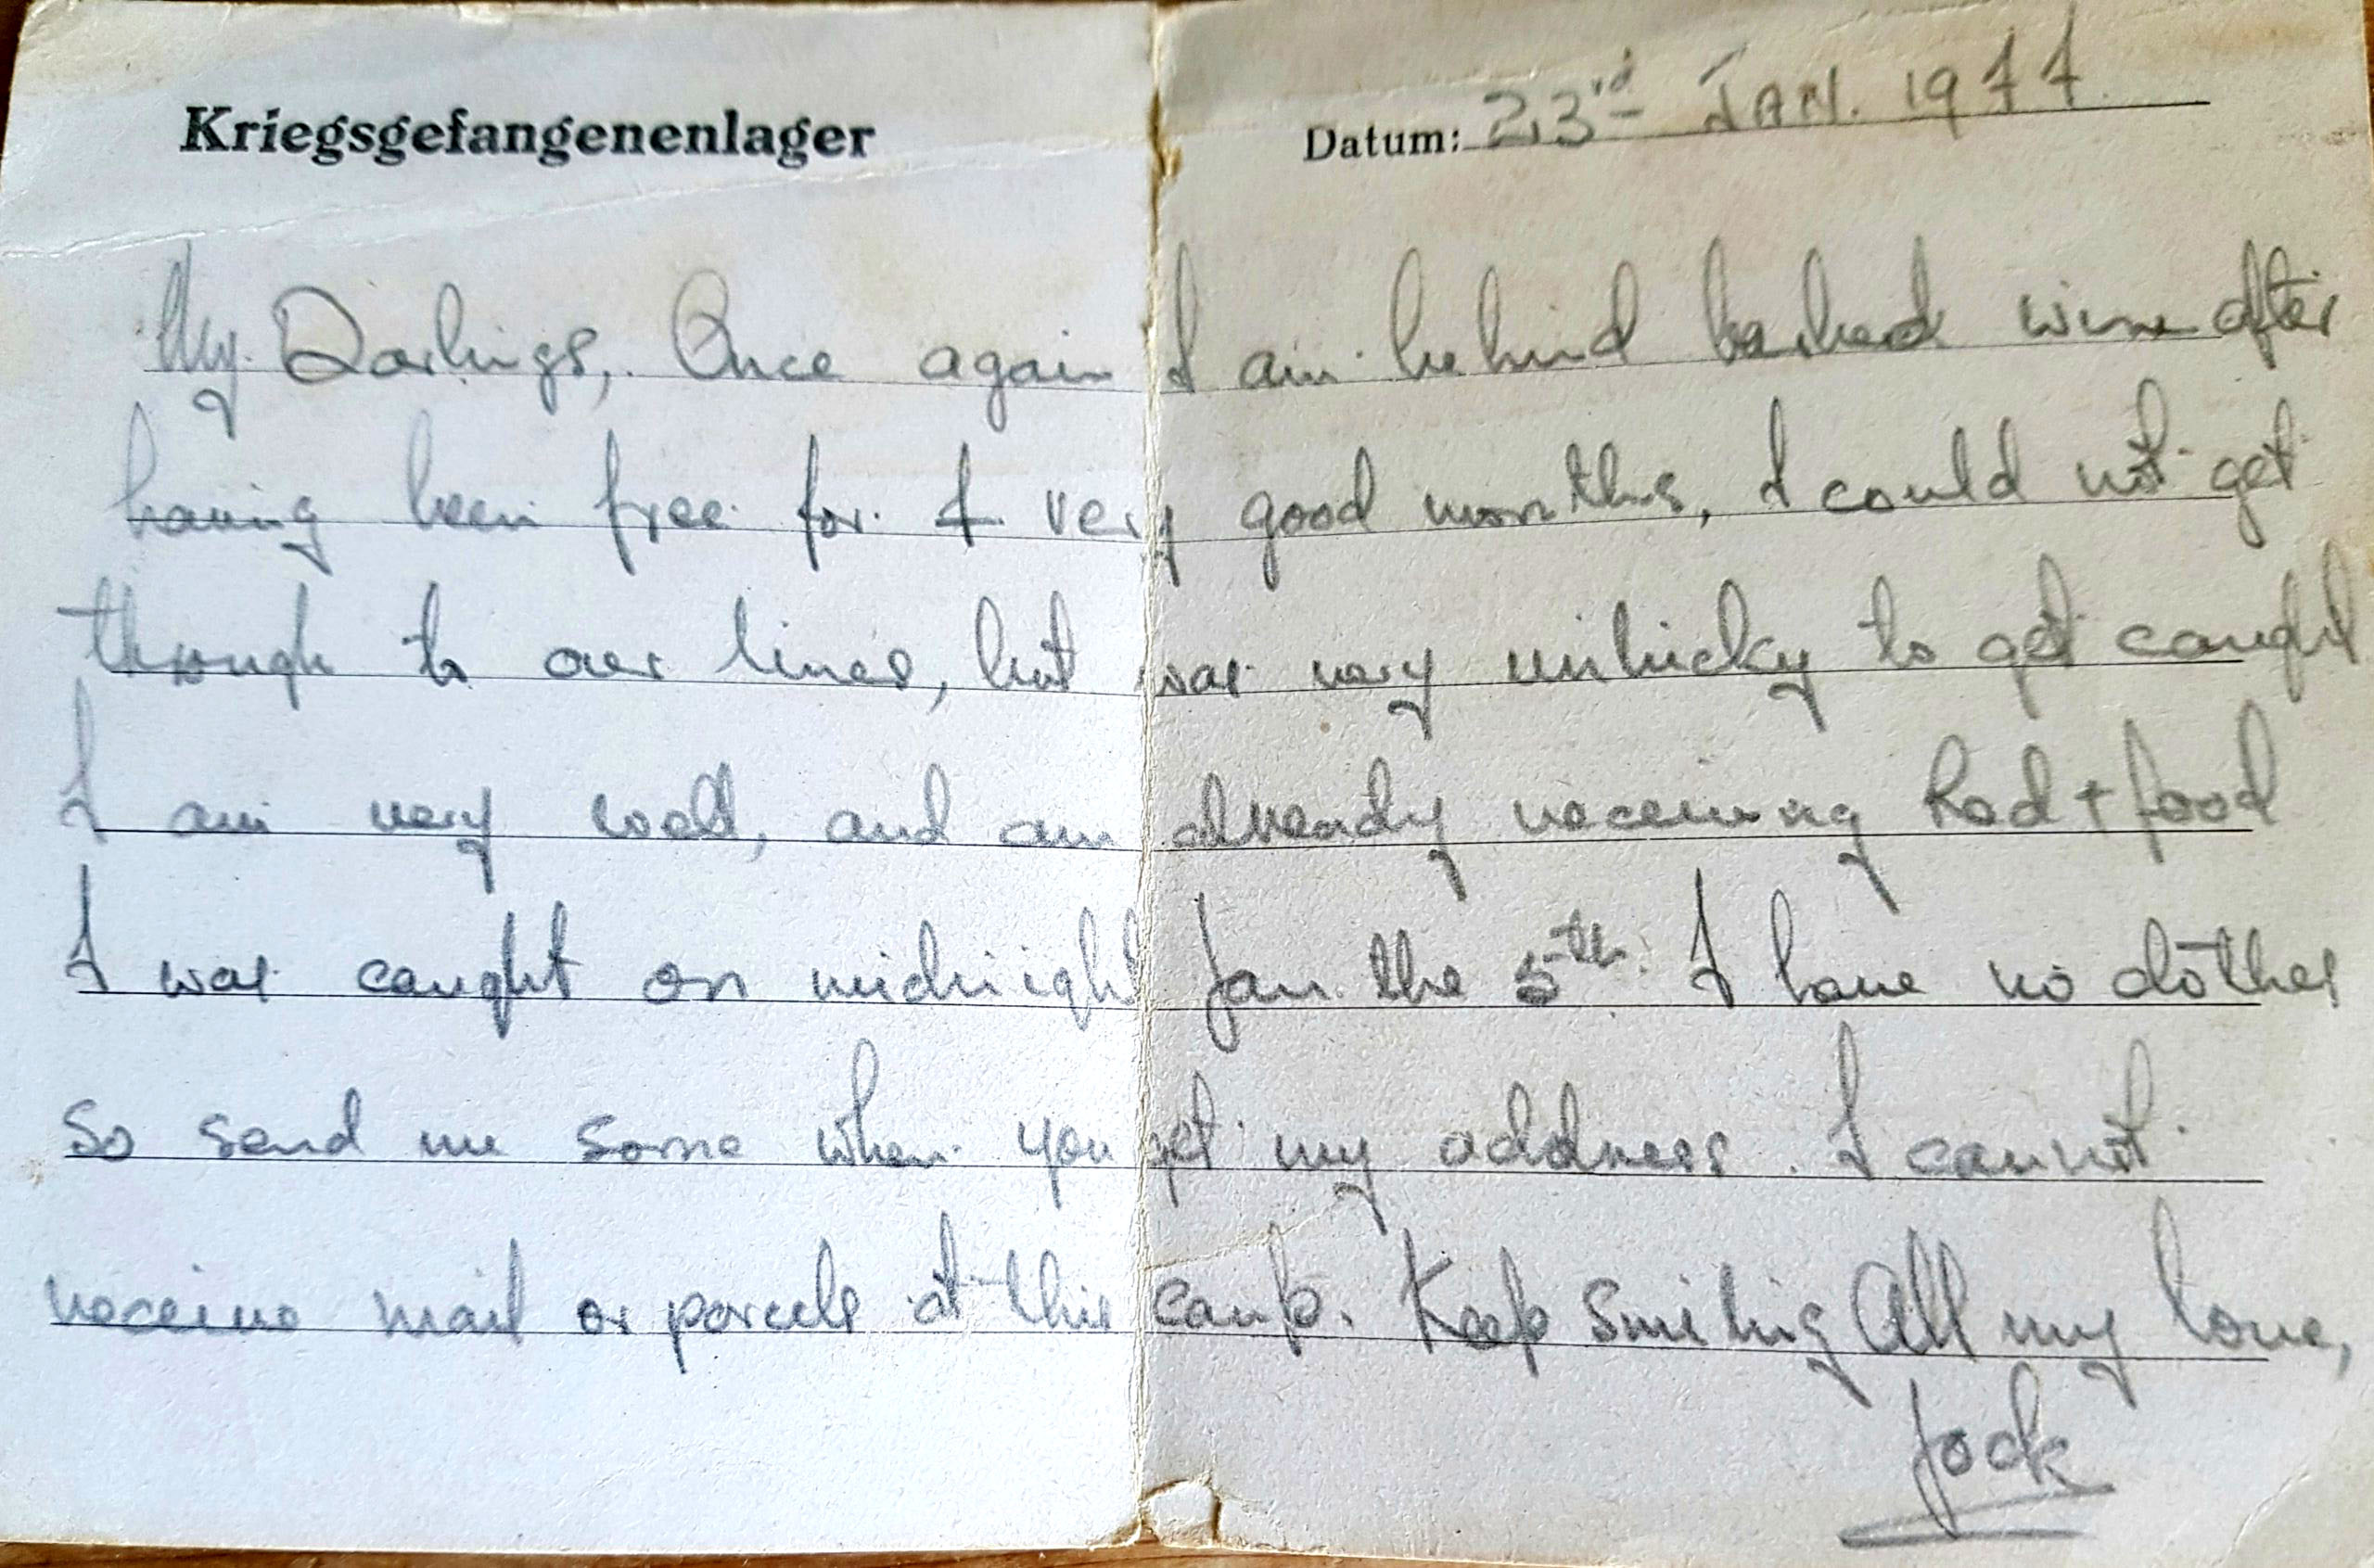 Kriegsgefangenenlager Datum: 23rd JAN. 1944.
My Darlings, Once again I am behind barbed wire after
having been free for 4 very good months, I could not get
through to our lines, but was very unlucky to get caught
I am very well, and am already receiving Red + food
I was caught on midnight Jan the 5th. I have no clothes
so send me some when you get my address. I cannot
receive mail or parcels at this camp. Keep smiling All my love,
Jock